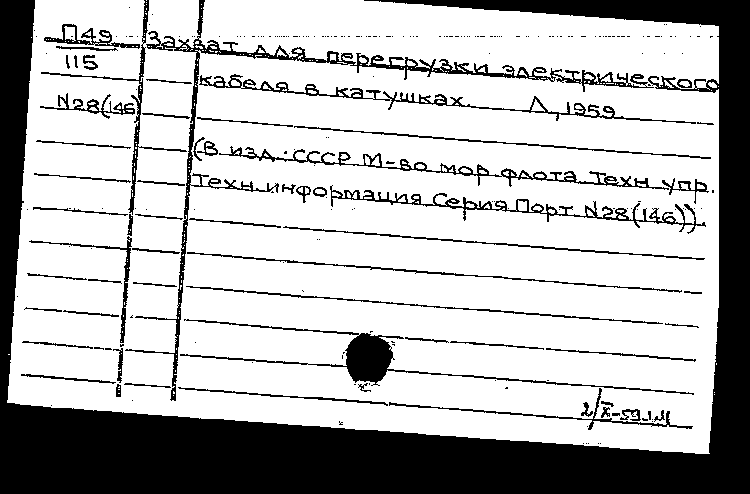 П49 Захват для перегрузки электрического
115
кабеля в катушках. Л, 1959.
N28(146)
(В изд.: СССР М-во мор флота Техн упр.
Техн. информация Серия Порт N28(146)).
2/X-59